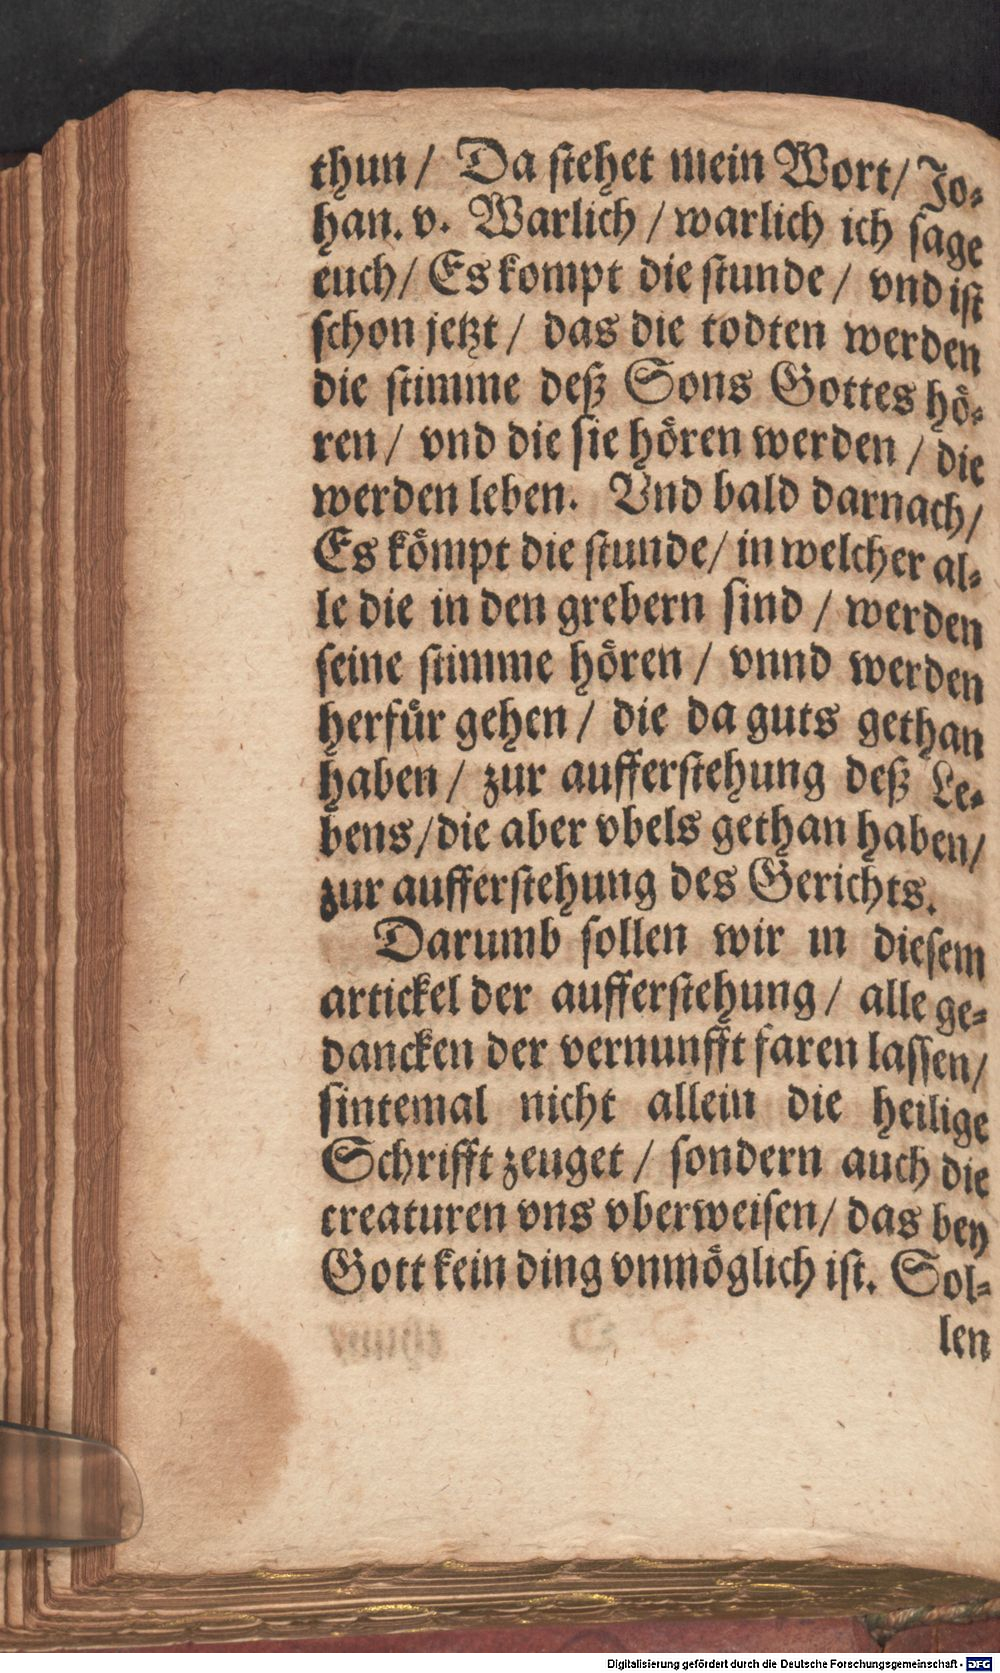 thun / Da stehet mein Wort / Jo-
han. v. Warlich / warlich ich sage
euch / Es kompt die stunde / vnd ist
schon jetzt / das die todten werden
die stimme deß Sons Gottes hö-
ren / vnd die sie hören werden / die
werden leben. Vnd bald darnach /
Es kömpt die stunde / in welcher al-
le die in den grebern sind / werden
seine stimme hören / vnnd werden
herfür gehen / die da guts gethan
haben / zur aufferstehung deß Le-
bens / die aber vbels gethan haben /
zur aufferstehung des Gerichts.
Darumb sollen wir in diesem
artickel der aufferstehung / alle ge-
dancken der vernunfft faren lassen /
sintemal nicht allein die heilige
Schrifft zeuget / sondern auch die
creaturen vns vberweisen / das bey
Gott kein ding vnmöglich ist. Sol-
len
Digitalisierung gefördert durch die Deutsche Forschungsgemeinschaft - DFG